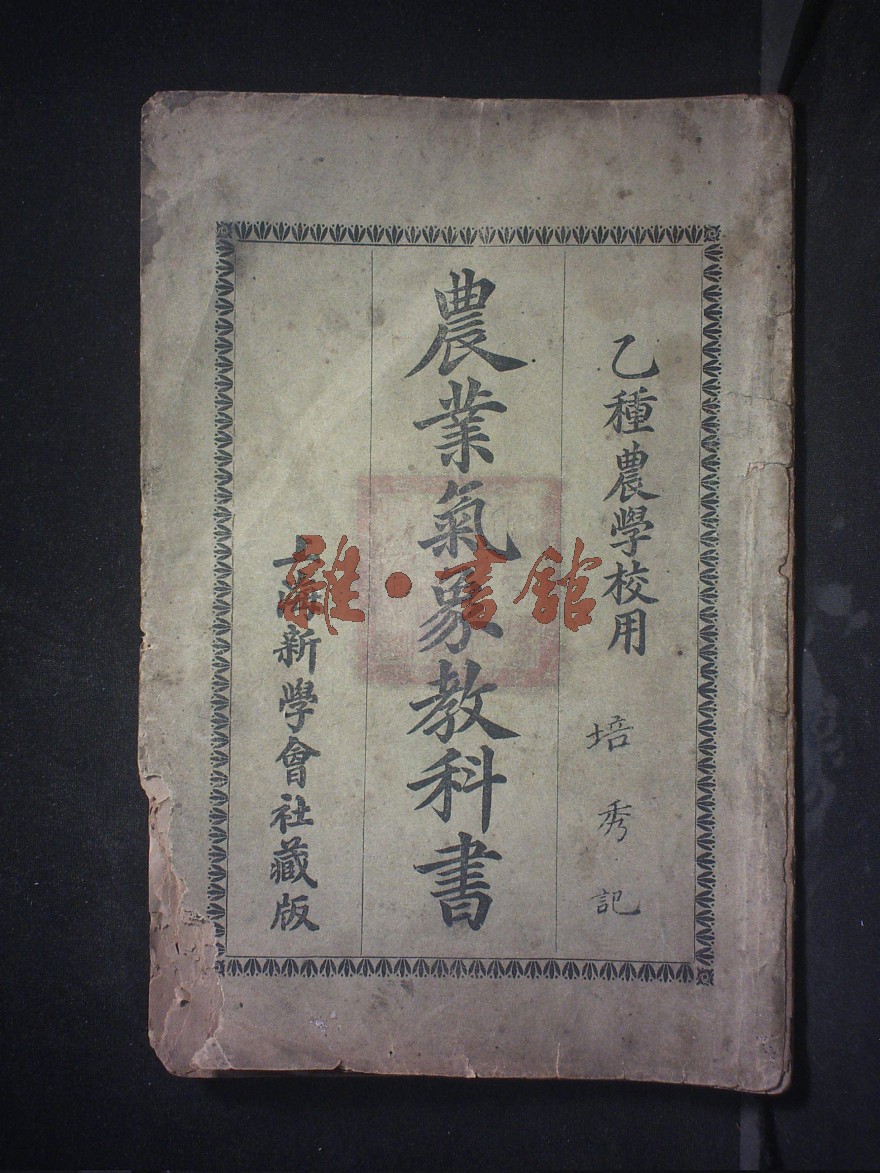 乙種農學校用
培秀記
農業氣象教科書
上海新學會社藏版
雜·書館